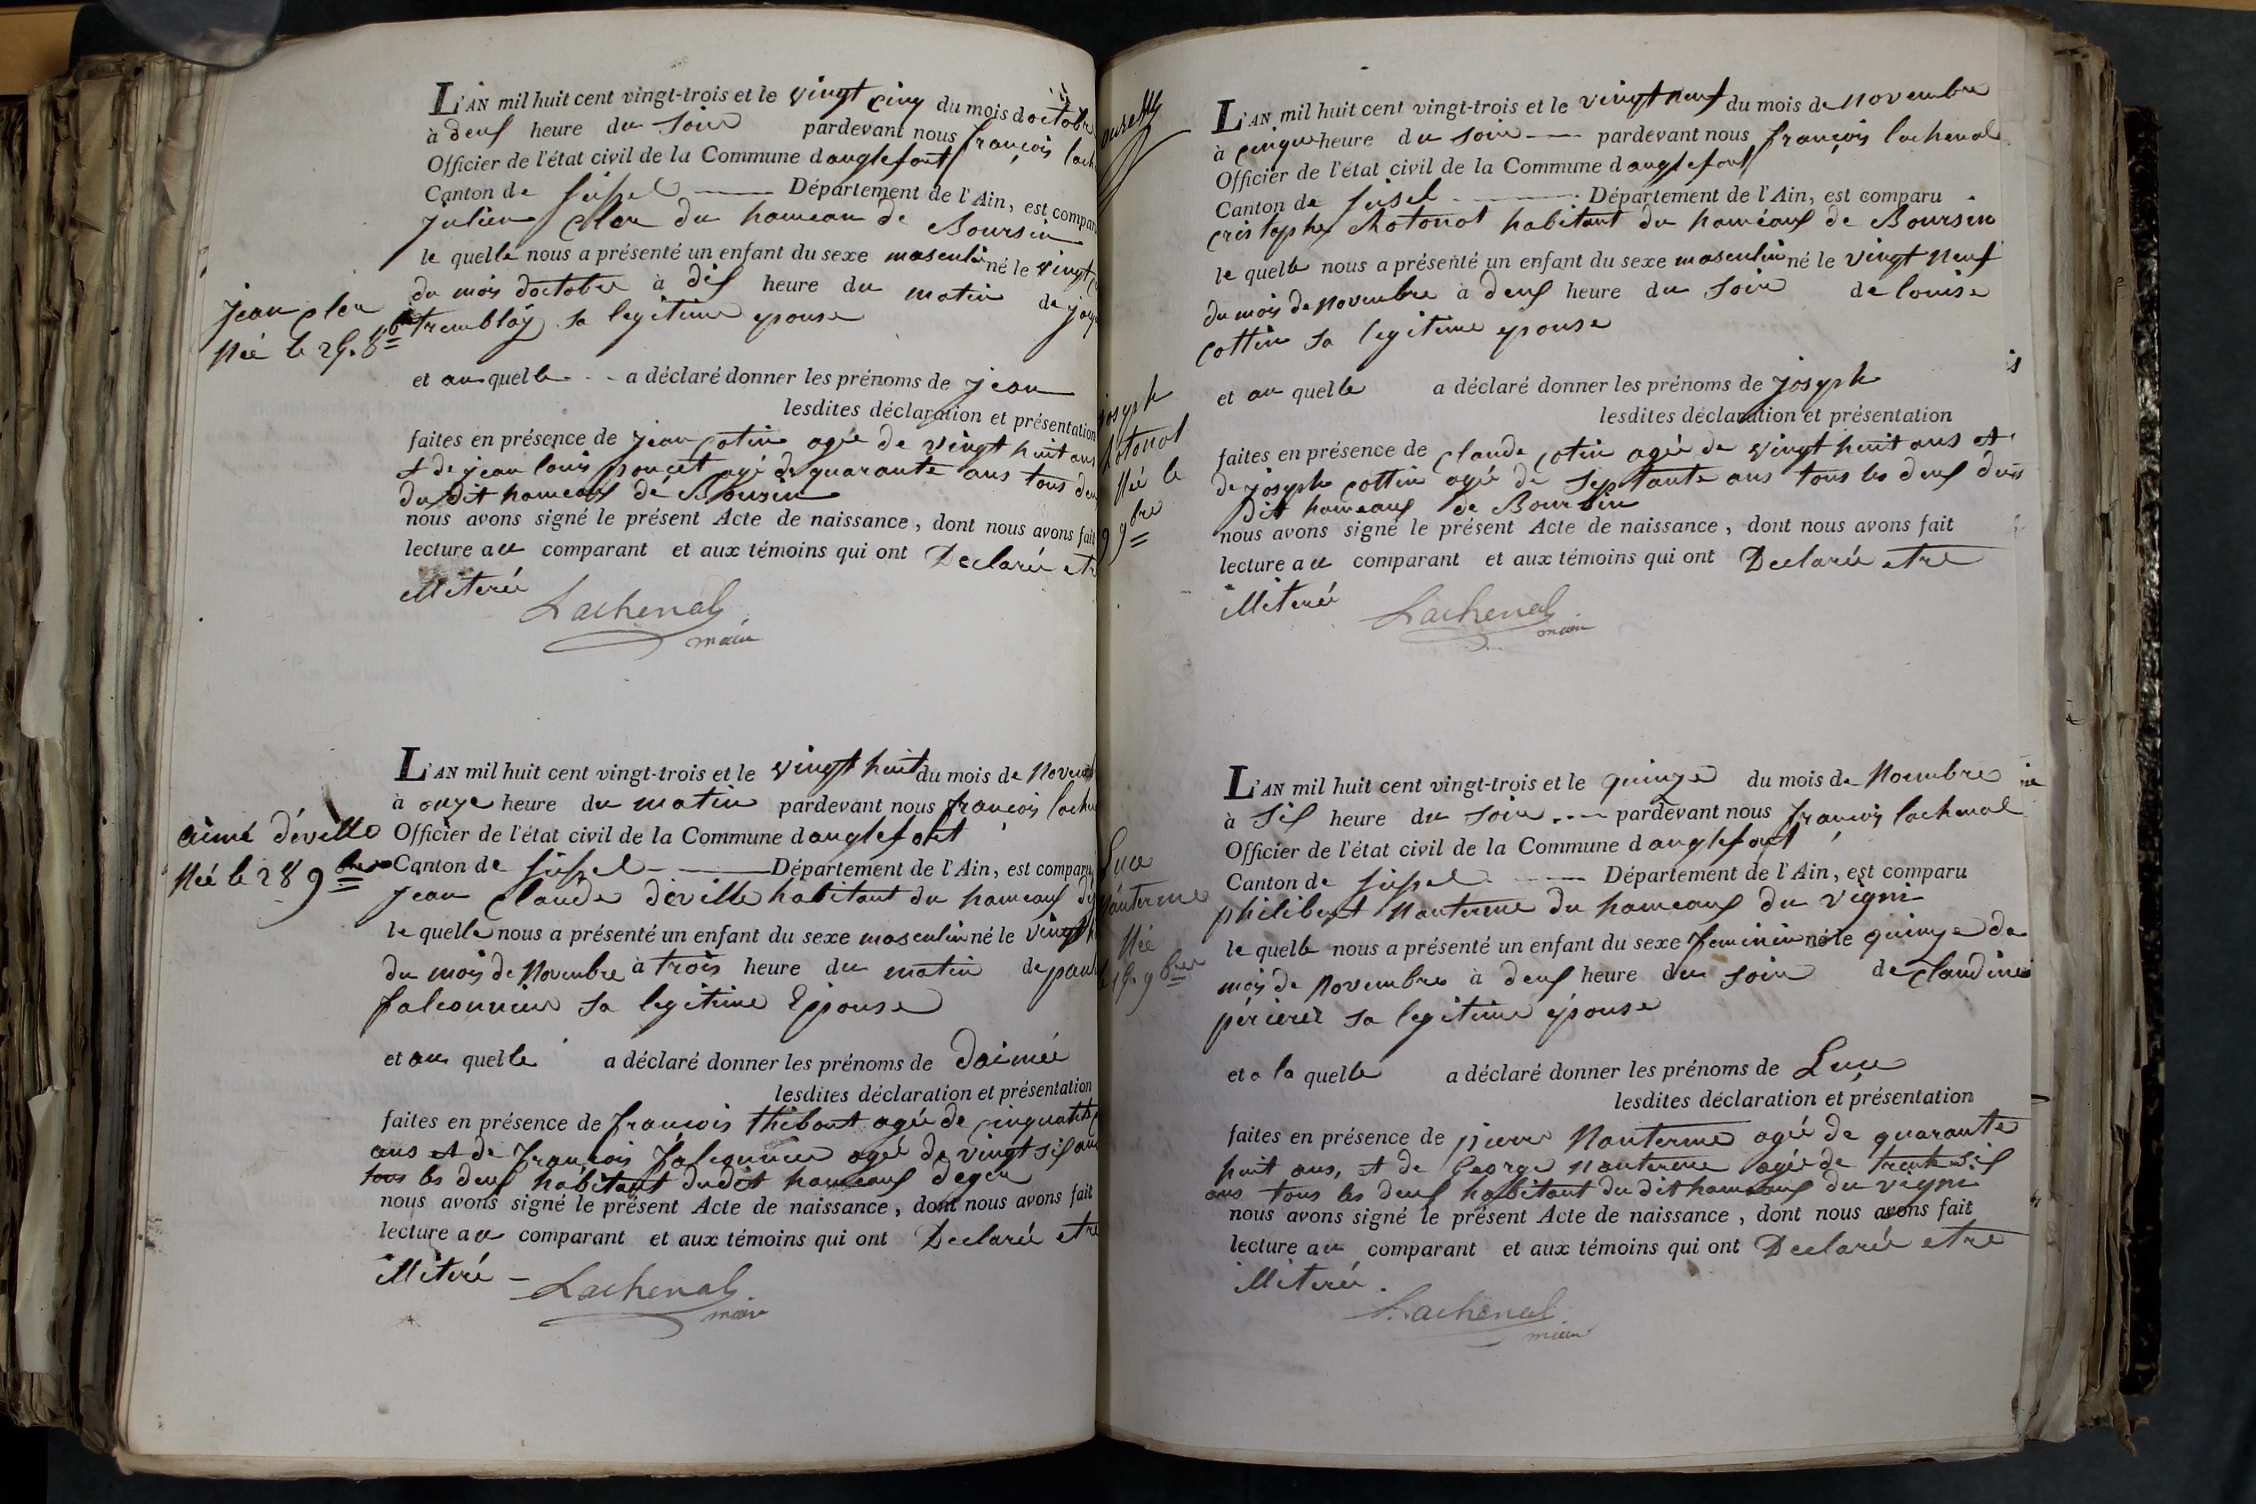 L'AN mil huit cent vingt-trois et le vingt cinq du mois doctobre
à deux heure du soir pardevant nous françois lach
Officier de l'état civil de la Commune danglefort
Canton de Seissel Département de l'Ain, est compar
julien cler du hameau de Boursin
le quelle nous a présenté un enfant du sexe masculin né le vingt
du mois doctobre à dix heure du matin de
tremblay sa legitime epouse
jean cler
Née le 25. 8bre
et au quelle a déclaré donner les prénoms de jean
lesdites déclaration et présentation
faites en présence de jean cotin agée de vingt huit ans
et de jean louis poncet agé de quarante ans tous deux
du dit hameaux de Boursin
nous avons signé le présent Acte de naissance, dont nous avons fait
lecture au comparant et aux témoins qui ont Declarée etre
illiterée
Lachenal
maire
L'AN mil huit cent vingt-trois et le vingt huit du mois de Novem
à onze heure du matin pardevant nous françois lache
Officier de l'état civil de la Commune danglefort
Canton de Seissel Département de l'Ain, est comparu
jean claude déville habitant du hameaux
aimé déville
Née le 28 9bre
le quelle nous a présenté un enfant du sexe masculin né le vingt h
du mois de Novembre à trois heure du matin de
falconnier sa legitime Epouse
et au quelle a déclaré donner les prénoms de daimée
lesdites déclaration et présentation
faites en présence de francois thibout agée de cinquante
ans et de françois falconnier agé de vingt six ans
tous les deux habitant dudit hameaux
nous avons signé le présent Acte de naissance, dont nous avons fait
lecture au comparant et aux témoins qui ont Declarée etre
illiteré
Lachenal
maire
L'AN mil huit cent vingt-trois et le vingt neuf du mois de Novembre
à cinque heure du soir pardevant nous françois lachenal
Officier de l'état civil de la Commune danglefort
Canton de Seisel Département de l'Ain, est comparu
cristophe Chotonot habitant du haméaux de Boursin
le quelle nous a présenté un enfant du sexe masculin né le vingt neuf
du mois de Novembre à deux heure du soir de louise
cottin sa legitime epouse
et au quelle a déclaré donner les prénoms de joseph
joseph
Chotonot
Née le
9bre
lesdites déclaration et présentation
faites en présence de claude cotin agée de vingt huit ans et
de joseph cottin agée de septante ans tous les deux du
dit hameaux de Boursin
nous avons signé le présent Acte de naissance, dont nous avons fait
lecture au comparant et aux témoins qui ont Declarée etre
illiterée
Lachenal
maire
L'AN mil huit cent vingt-trois et le quinze du mois de Novembre
à six heure du soir pardevant nous françois lachenal
Officier de l'état civil de la Commune danglefort
Canton de Seissel Département de l'Ain, est comparu
philibert Nanterme du hameaux du vigni
Luce
Nanterme
Née
le 15. 9bre
le quelle nous a présenté un enfant du sexe feminin né le quinze du
mois de Novembre à deux heure du soir de claudine
périerer sa legitime épouse
et a la quelle a déclaré donner les prénoms de Luce
lesdites déclaration et présentation
faites en présence de pierre Nanterme agée de quarante
huit ans, et de George nanterme agée de trente six
ans tous les deux habitant du dit hameaux du vigni
nous avons signé le présent Acte de naissance, dont nous avons fait
lecture au comparant et aux témoins qui ont Declarée etre
illiterée.
Lachenal
maire